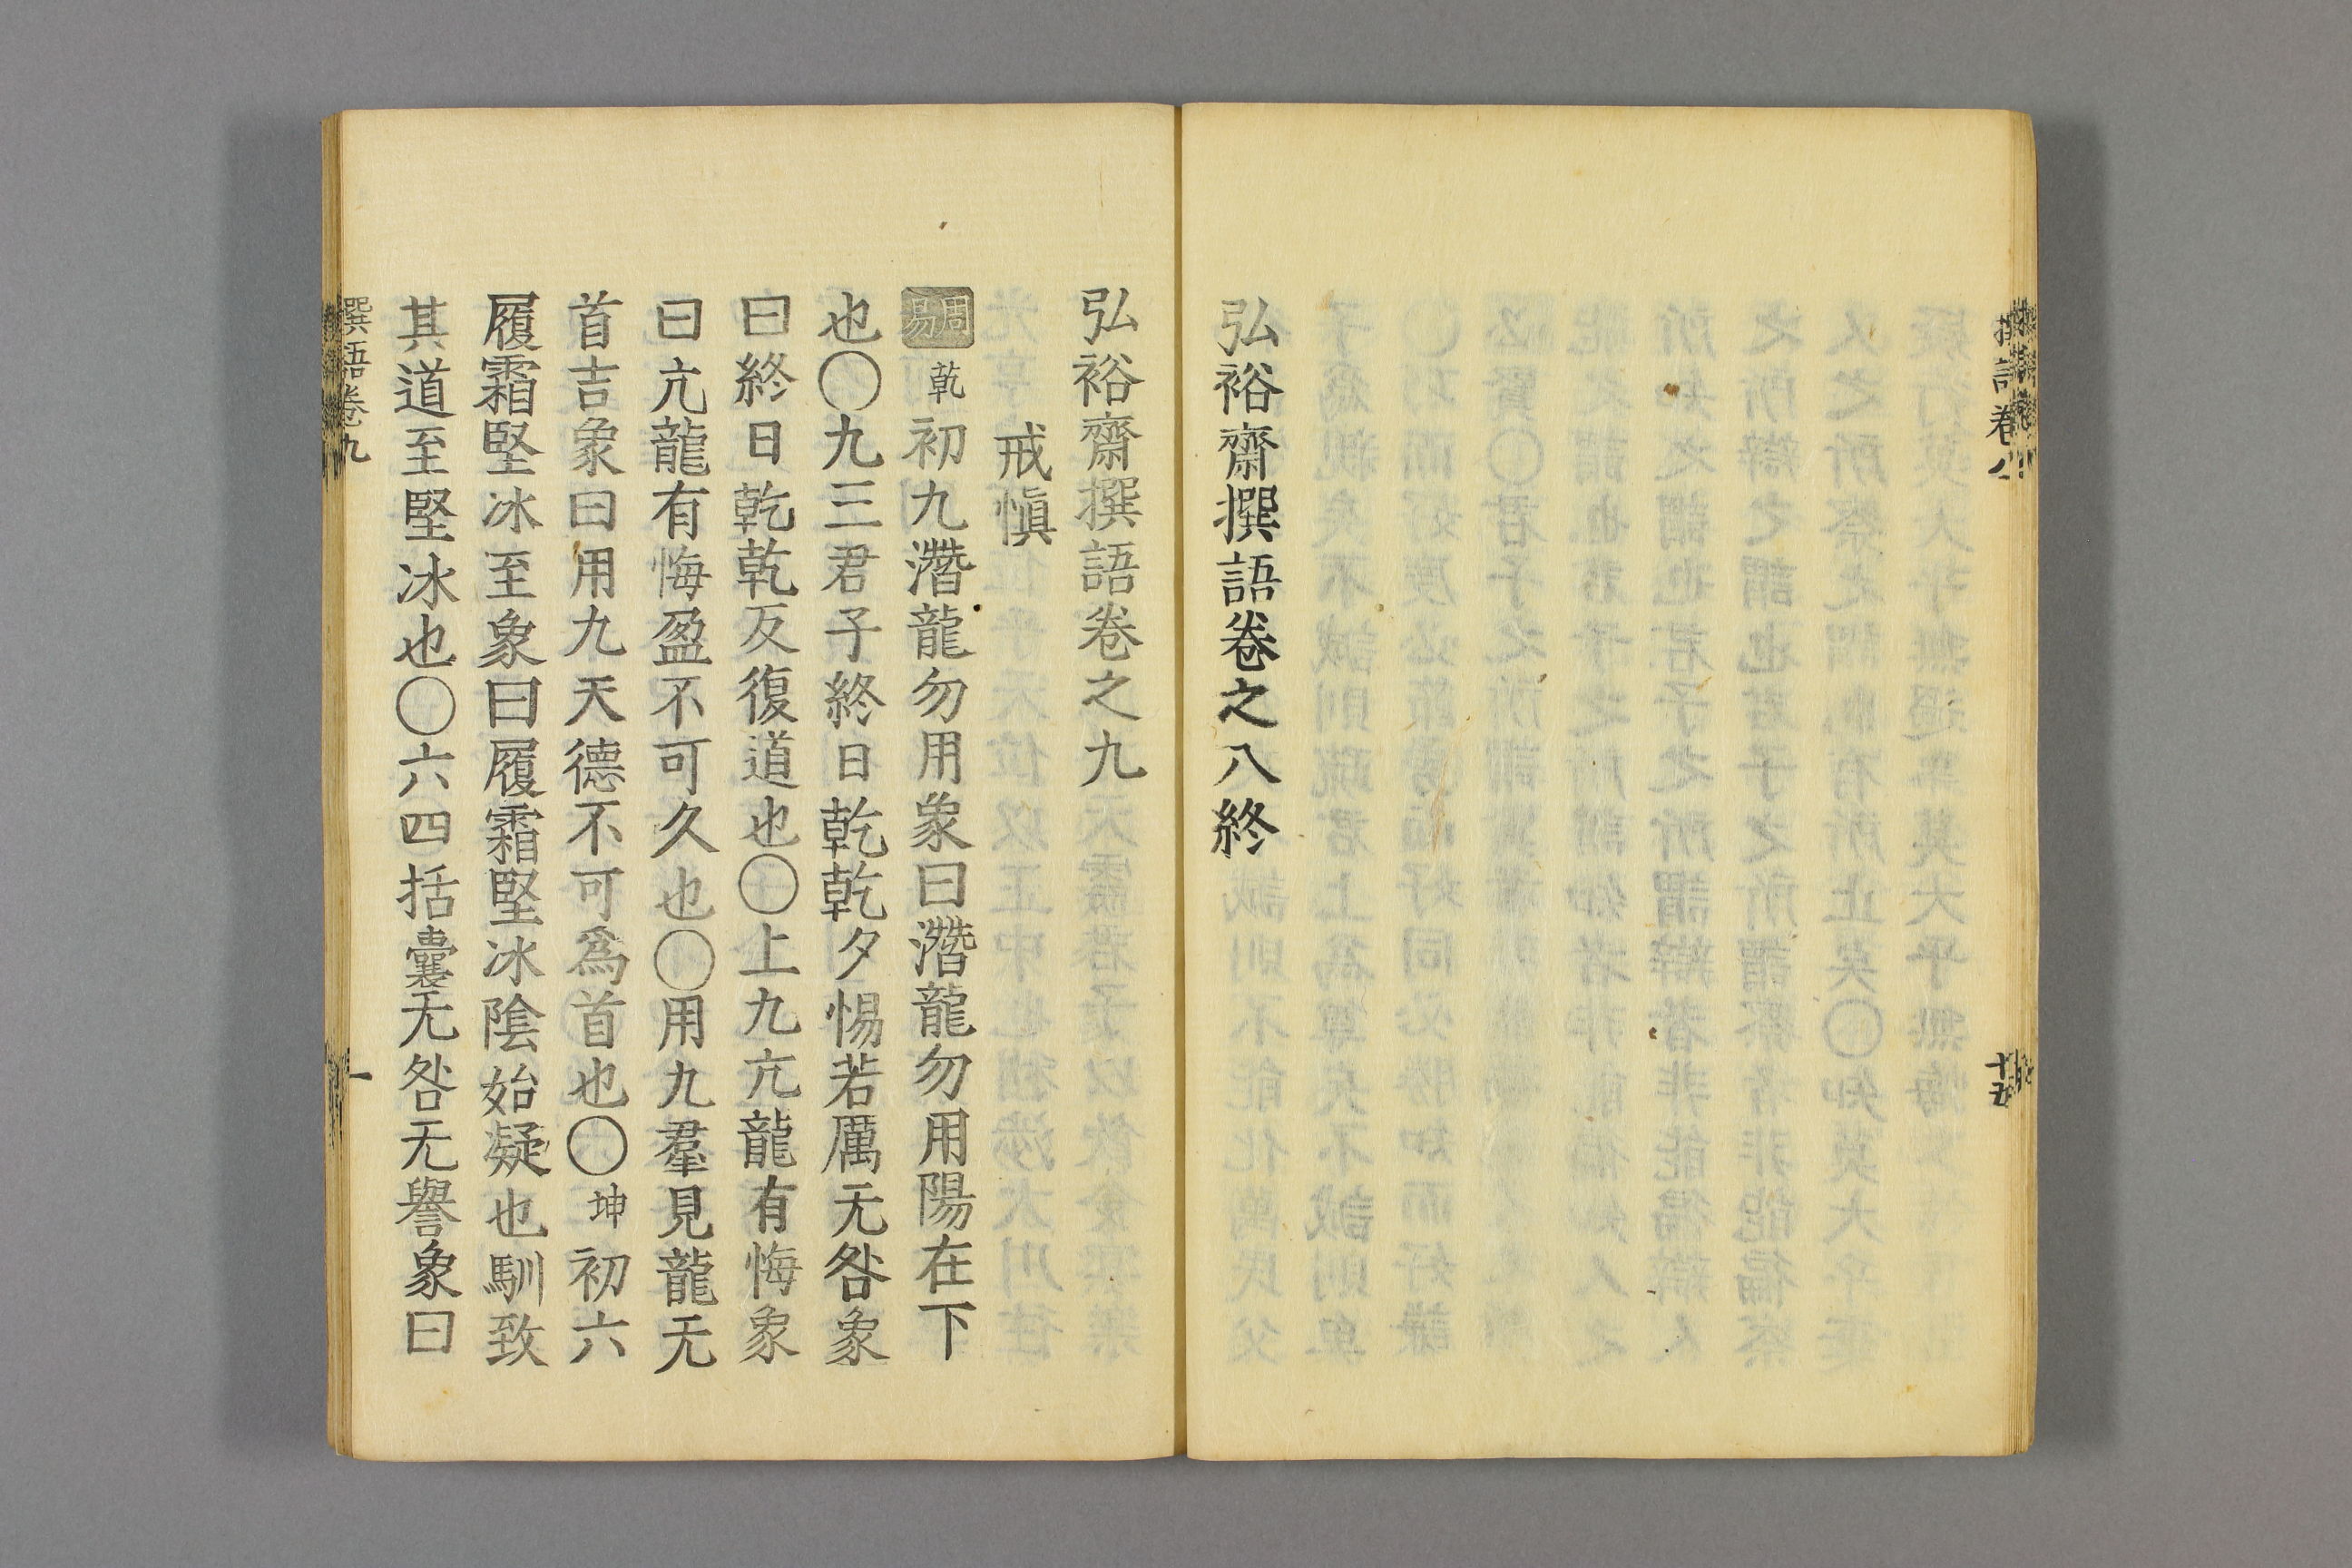 弘裕齋撰語卷之八終
弘裕齋撰語卷之九
戒愼
周易 乾 初九潛龍勿用象曰潛龍勿用陽在下
也〇九三君子終日乾乾夕惕若厲无咎象
曰終日乾乾反復道也〇上九亢龍有悔象
曰亢龍有悔盈不可久也〇用九羣見龍无
首吉象曰用九天德不可爲首也〇坤初六
履霜堅冰至象曰履霜堅冰陰始凝也馴致
其道至堅冰也〇六四括囊无咎无譽象曰
撰語卷九
一
撰語卷八
十五